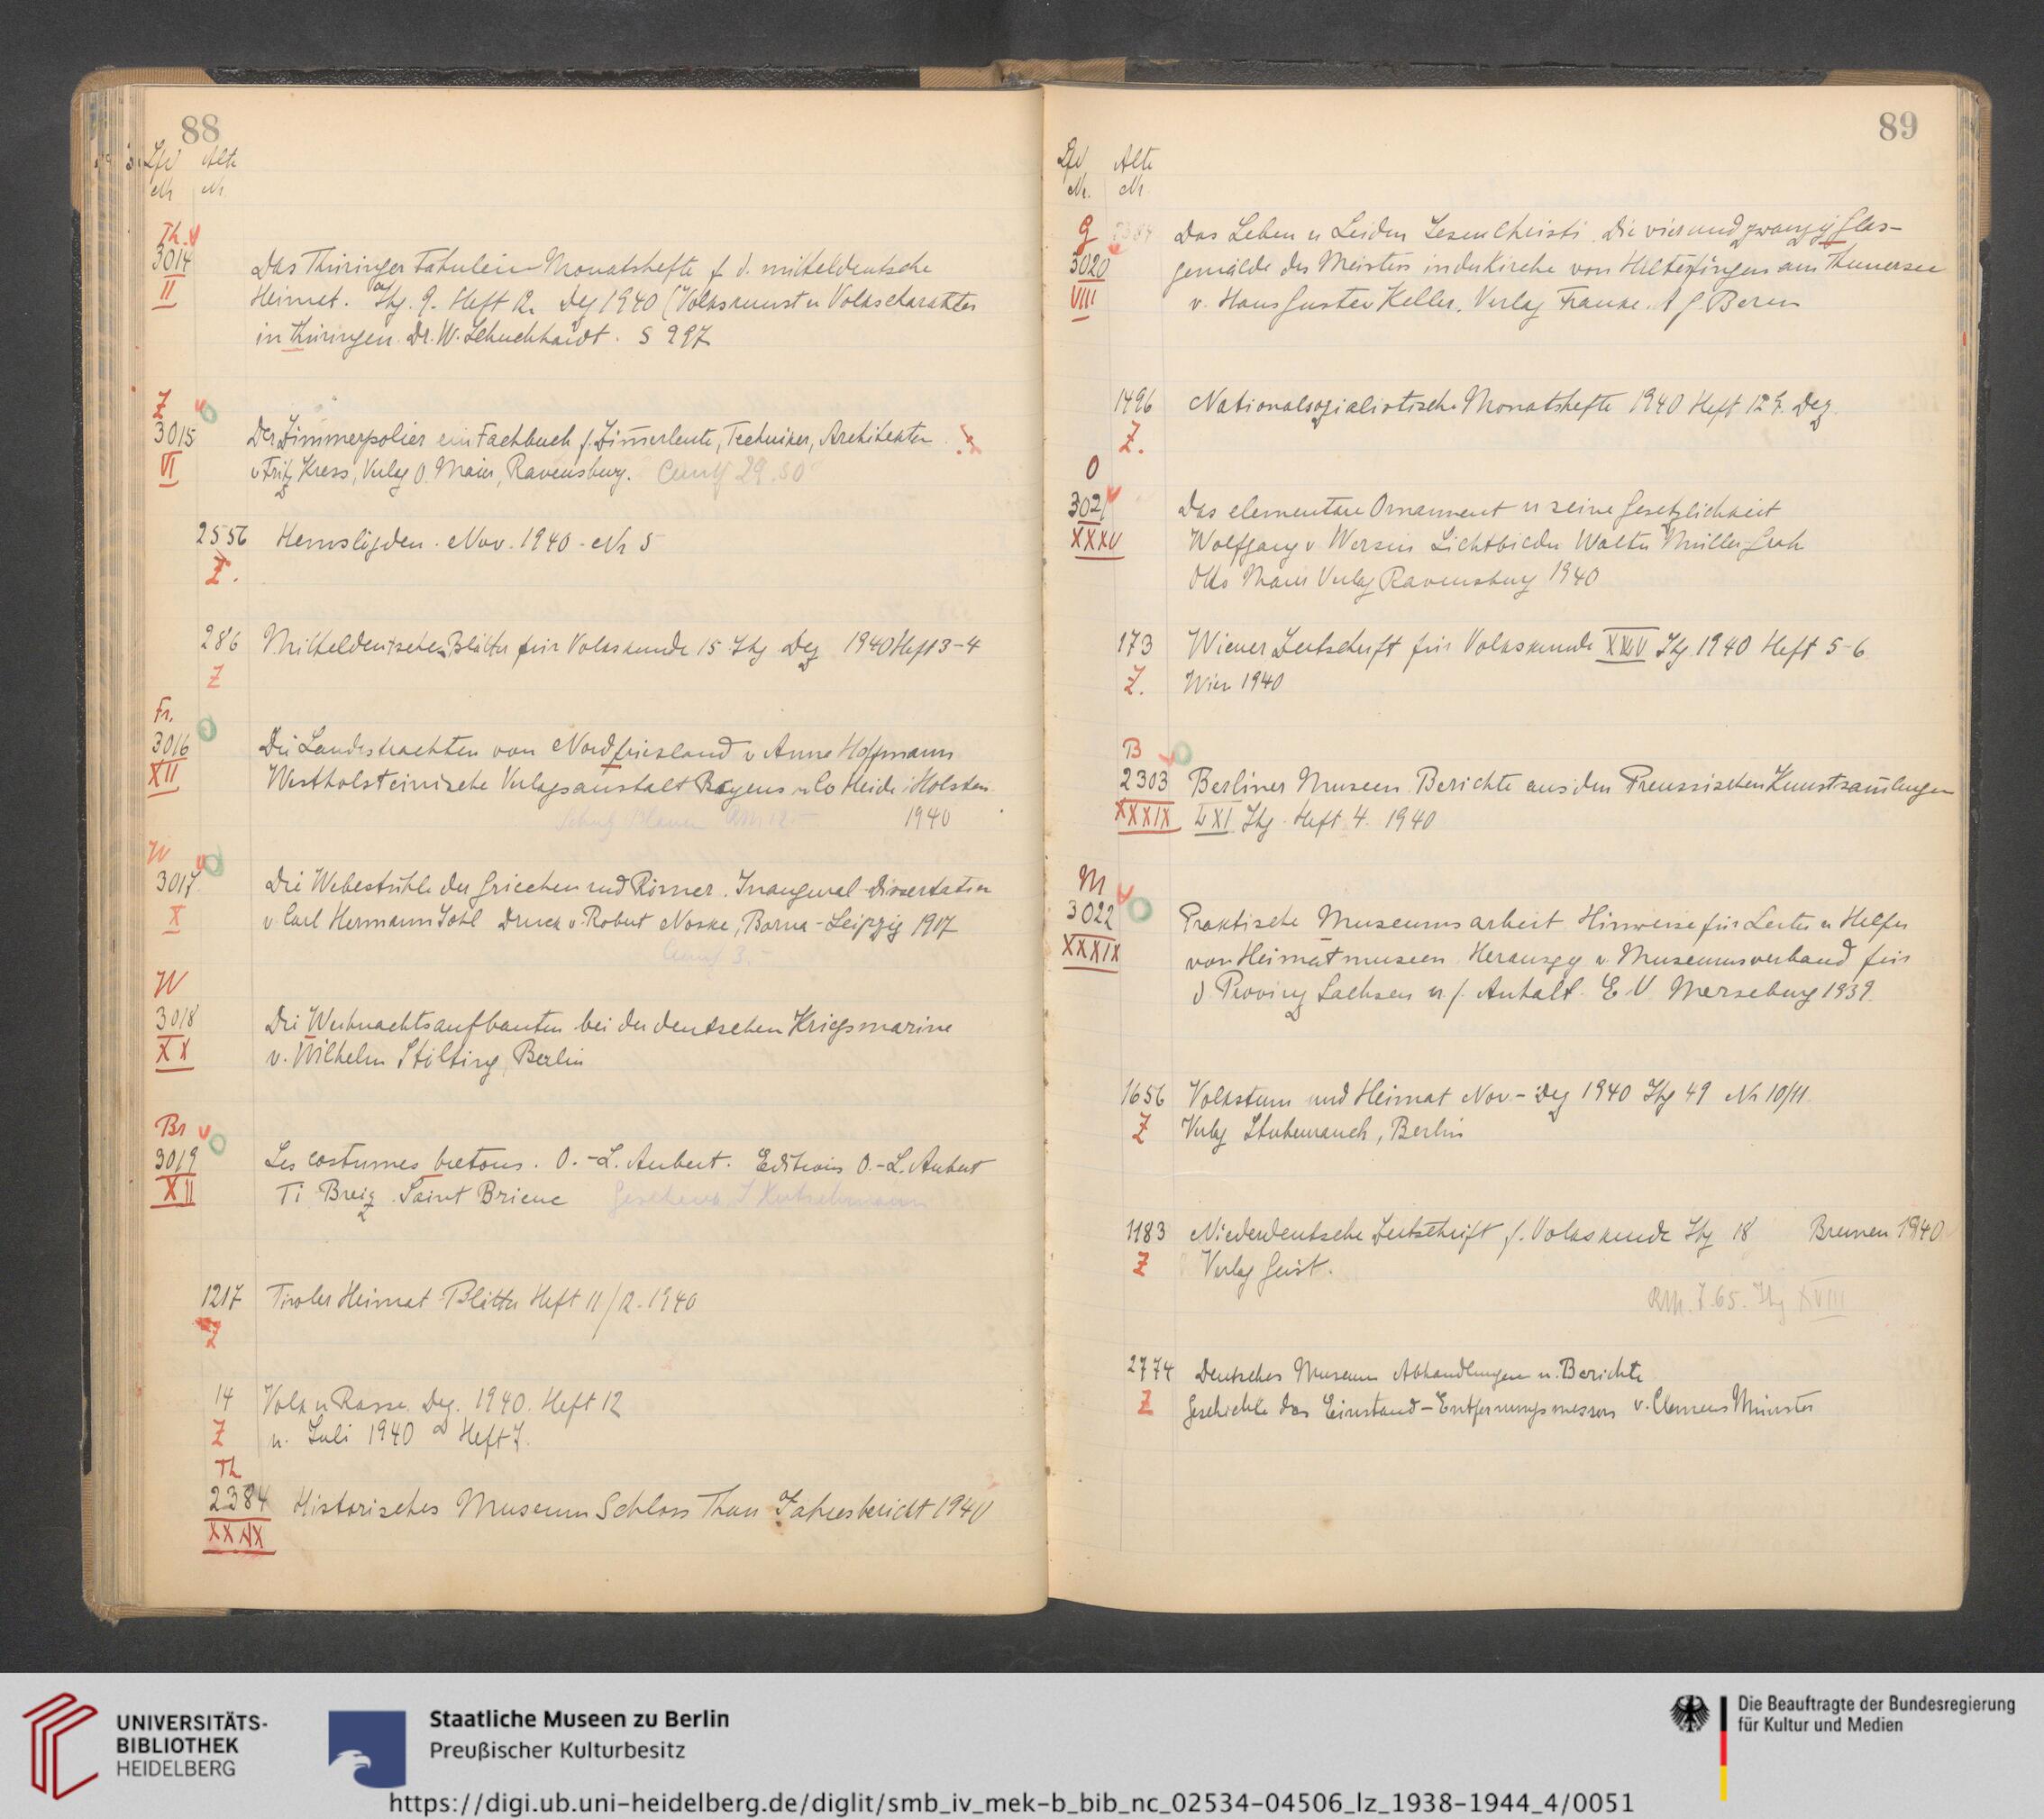 88
Lfd Alte
Nr Nr
Th.
3014
II
Das Thüringer Fähnlein Monatshefte f. d. mitteldeutsche
Heimat. Jhg. 9. Heft 12. Dez 1940 (Volkskunst u Volkscharakter
in Thüringen. Dr. W. Schuchhardt. S 297
Z
3015
VI
Der Zimmerpolier ein Fachbuch f. Zim̄erleute, Techniker, Architekten.
v Fritz Kress, Verlag O. Maier, Ravensburg. 29.80
2556 Hemslöjden. Nov. 1940. Nr 5
Z.
286 Mitteldeutsche Blätter für Volkskunde 15 Jhg Dez 1940 Heft 3-4
Z
Fr.
3016
XII
Die Landestrachten von Nordfriesland v Anna Hoffmann
Westholsteinische Verlagsanstalt Boyens u Co Heide i Holstein.
1940
W
3017
X
Die Webestühle der Griechen und Römer. Inaugural-Dissertation
v. Carl Hermann Johl Druck v. Robert Noske, Borna-Leipzig 1917
W
3018
XX
Die Weihnachtsaufbauten bei der deutschen Kriegsmarine
v. Wilhelm Stölting, Berlin
Br
3019
XII
Les costumes bretons. O.-L. Aubert. Editions O.-L. Aubert
Ti Breiz Saint Brieuc
1217 Tiroler Heimat-Blätter Heft 11/12. 1940
Z
14 Volk u Rasse. Dez. 1940. Heft 12
Z u. Juli 1940 Heft 7.
Th
2384 Historisches Museum Schloss Thun Jahresbericht 1940
XXXIX
89
Lfd Alte
Nr. Nr
G
3020
VIII
Das Leben u Leiden Jesu Christi. Die vierundzwanzig Glas-
gemälde des Meisters in der Kirche von Hilterfingen am Thunersee
v. Hans Gustav Keller. Verlag Franke. A G. Bern
1496 Nationalsozialistische Monatshefte 1940 Heft 129. Dez.
Z.
O
3021
XXXV
Das elementare Ornament u seine Gesetzlichkeit
Wolfgang v Wersin Lichtbilder Walter Müller-Grah
Otto Maier Verlag Ravensburg 1940
173 Wiener Zeitschrift für Volkskunde XLV Jhg. 1940 Heft 5-6
Z. Wien 1940
B
2303 Berliner Museen. Berichte aus den Preussischen Kunstsam̄lungen
XXXIX LXI Jhg. Heft 4. 1940
M
3022
XXXIX
Praktische Museumsarbeit Hinweise für Leiter u Helfer
von Heimatmuseen. Herausgeg v. Museumsverband für
d. Provinz Sachsen u. f. Anhalt. E V. Merseburg 1939.
1656 Volkstum und Heimat Nov.-Dez 1940 Jhg 49 Nr 10/11.
Z Verlag Stubenrauch, Berlin
1183 Niederdeutsche Zeitschrift f. Volkskunde Jhg 18 Bremen 1940
Z Verlag Geist.
RM. 7.65. Jhg XVIII
2774 Deutsches Museum Abhandlungen u. Berichte
Z Geschichte des Einstand-Entfernungsmessers v. Clemens Münster
UNIVERSITÄTS-
BIBLIOTHEK
HEIDELBERG
Staatliche Museen zu Berlin
Preußischer Kulturbesitz
Die Beauftragte der Bundesregierung
für Kultur und Medien
https://digi.ub.uni-heidelberg.de/diglit/smb_iv_mek-b_bib_nc_02534-04506_lz_1938-1944_4/0051